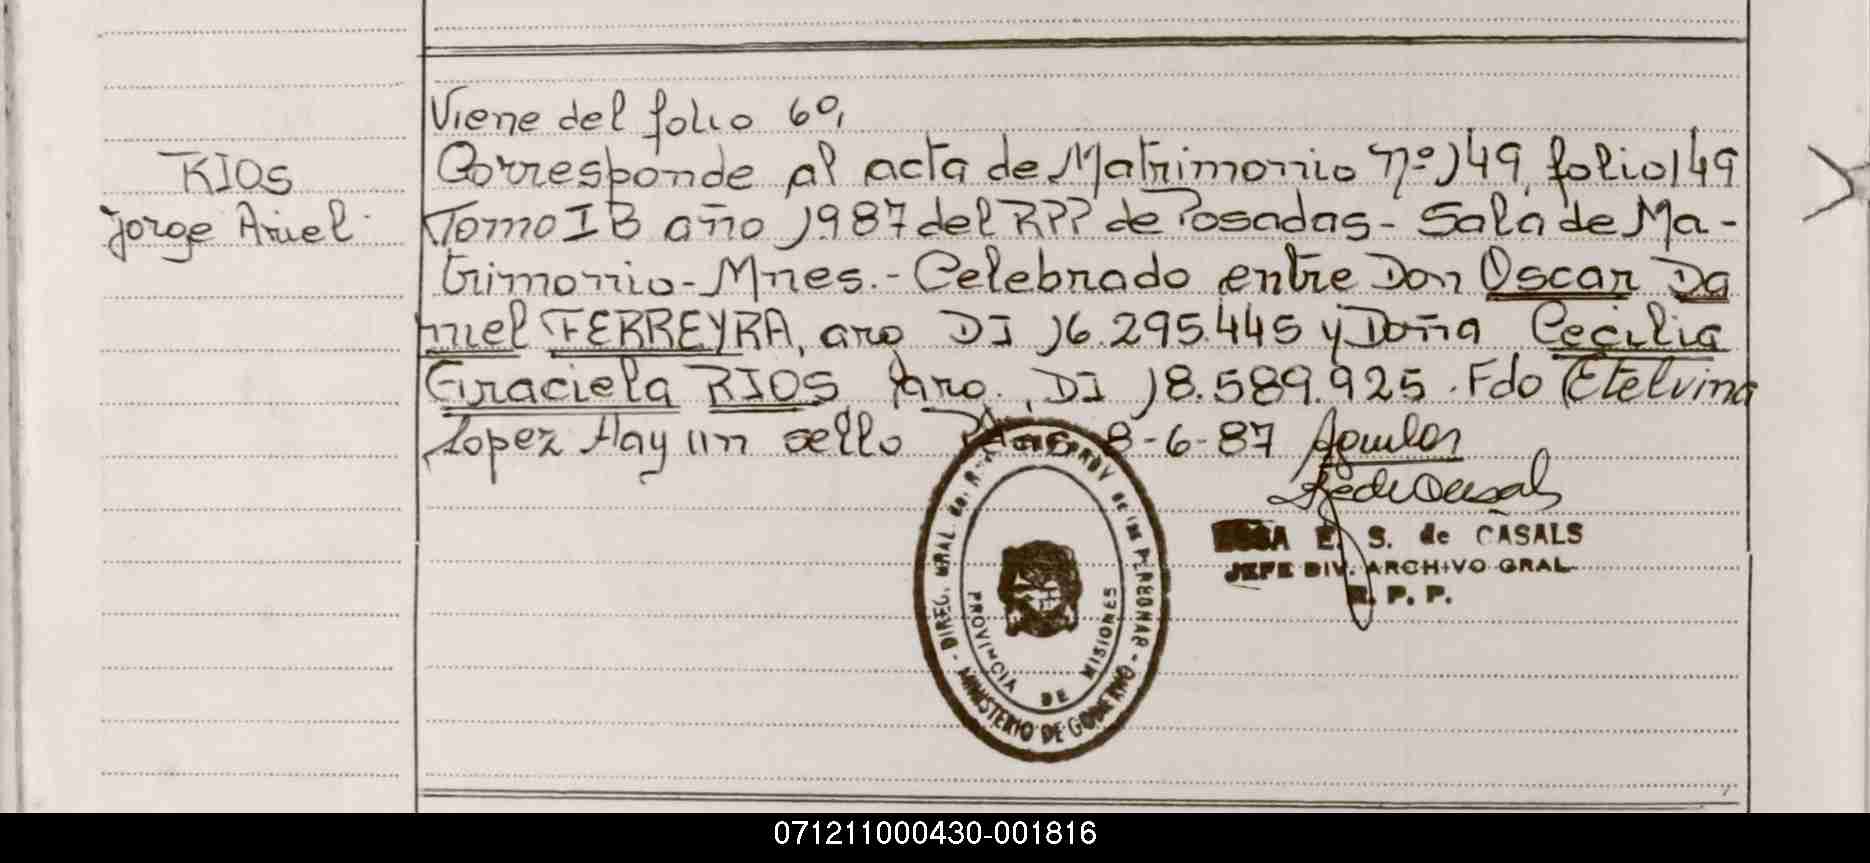 RIOS
Jorge Ariel
Viene del folio 60,
Corresponde al acta de Matrimonio nº 149, folio 149
Tomo I B año 1987 del RPP de Posadas - Sala de Ma-
trimonio - Mnes. - Celebrado entre Don Oscar Da
niel FERREYRA, arg DI 16.295.445 y Doña Cecilia
Graciela RIOS arg. DI 18.589.925. Fdo Etelvina
Lopez Hay un sello 8-6-87 Aguilar
E. S. de CASALS
JEFE DIV. ARCHIVO GRAL
R. P. P.
DIREC. GRAL de PROV de las PERSONAS - MINISTERIO DE GOBIERNO -
PROVINCIA DE MISIONES
071211000430-001816